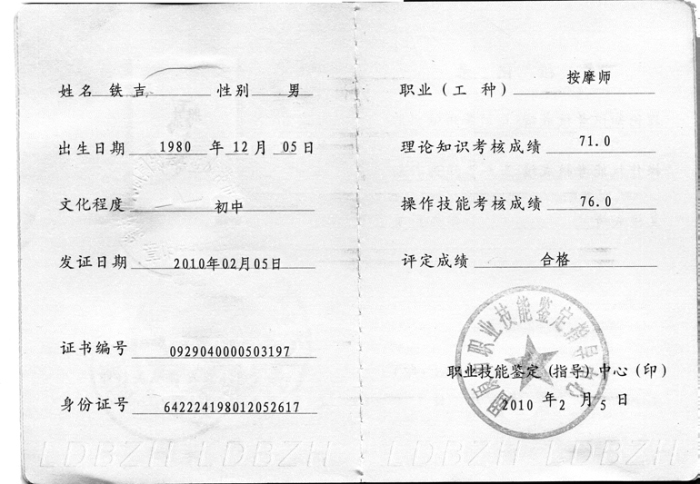 姓名 铁吉 性别 男
出生日期 1980 年 12 月 05 日
文化程度 初中
发证日期 2010年02月05日
证书编号 0929040000503197
身份证号 642224198012052617
LDBZH LDBZH
职业（工 种） 按摩师
理论知识考核成绩 71.0
操作技能考核成绩 76.0
评定成绩 合格
职业技能鉴定指导中心
职业技能鉴定（指导）中心（印）
2010 年 2 月 5 日
LDBZH LDBZH